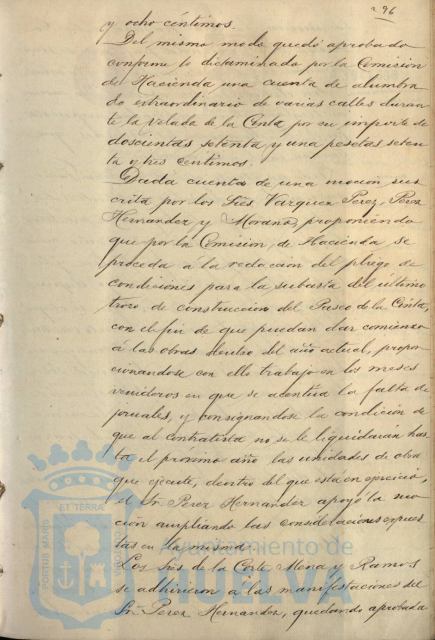 296
y ocho céntimos.
Del mismo modo quedó aprobada
conforme lo dictaminado por la Comision
de Hacienda una cuenta de alumbra
do extraordinario de varias calles duran
te la Velada de la Cinta por su importe de
doscientas setenta y una pesetas seten
ta y tres centimos.
Dada cuenta de una mocion sus
crita por los Sres Vazquez Perez, Perez
Hernandez y Morano, proponiendo
que por la Comision de Hacienda se
proceda á la redaccion del pliego de
condiciones para la subasta del último
trozo de construccion del Paseo de la Cinta,
con el fin de que puedan dar comienzo
á las obras dentro del año actual, propor
cionandose con ello trabajo en los meses
venideros en que se acentua la falta de
jornales, y consignandose la condicion de
que al Contratista no se le liquidarán has
ta el próximo año las unidades de obra
que ejecute, dentro del que está en ejercicio,
el Sr. Perez Hernandez apoyó la mo
cion ampliando las consideraciones expues
tas en la misma.
Los Sres de la Corte Mena y Ramos
se adhirieron a las manifestaciones del
Sr. Perez Hernandez, quedando aprobada
PORTUS MARIS
ET TERRÆ
Ayuntamiento de
HUELVA